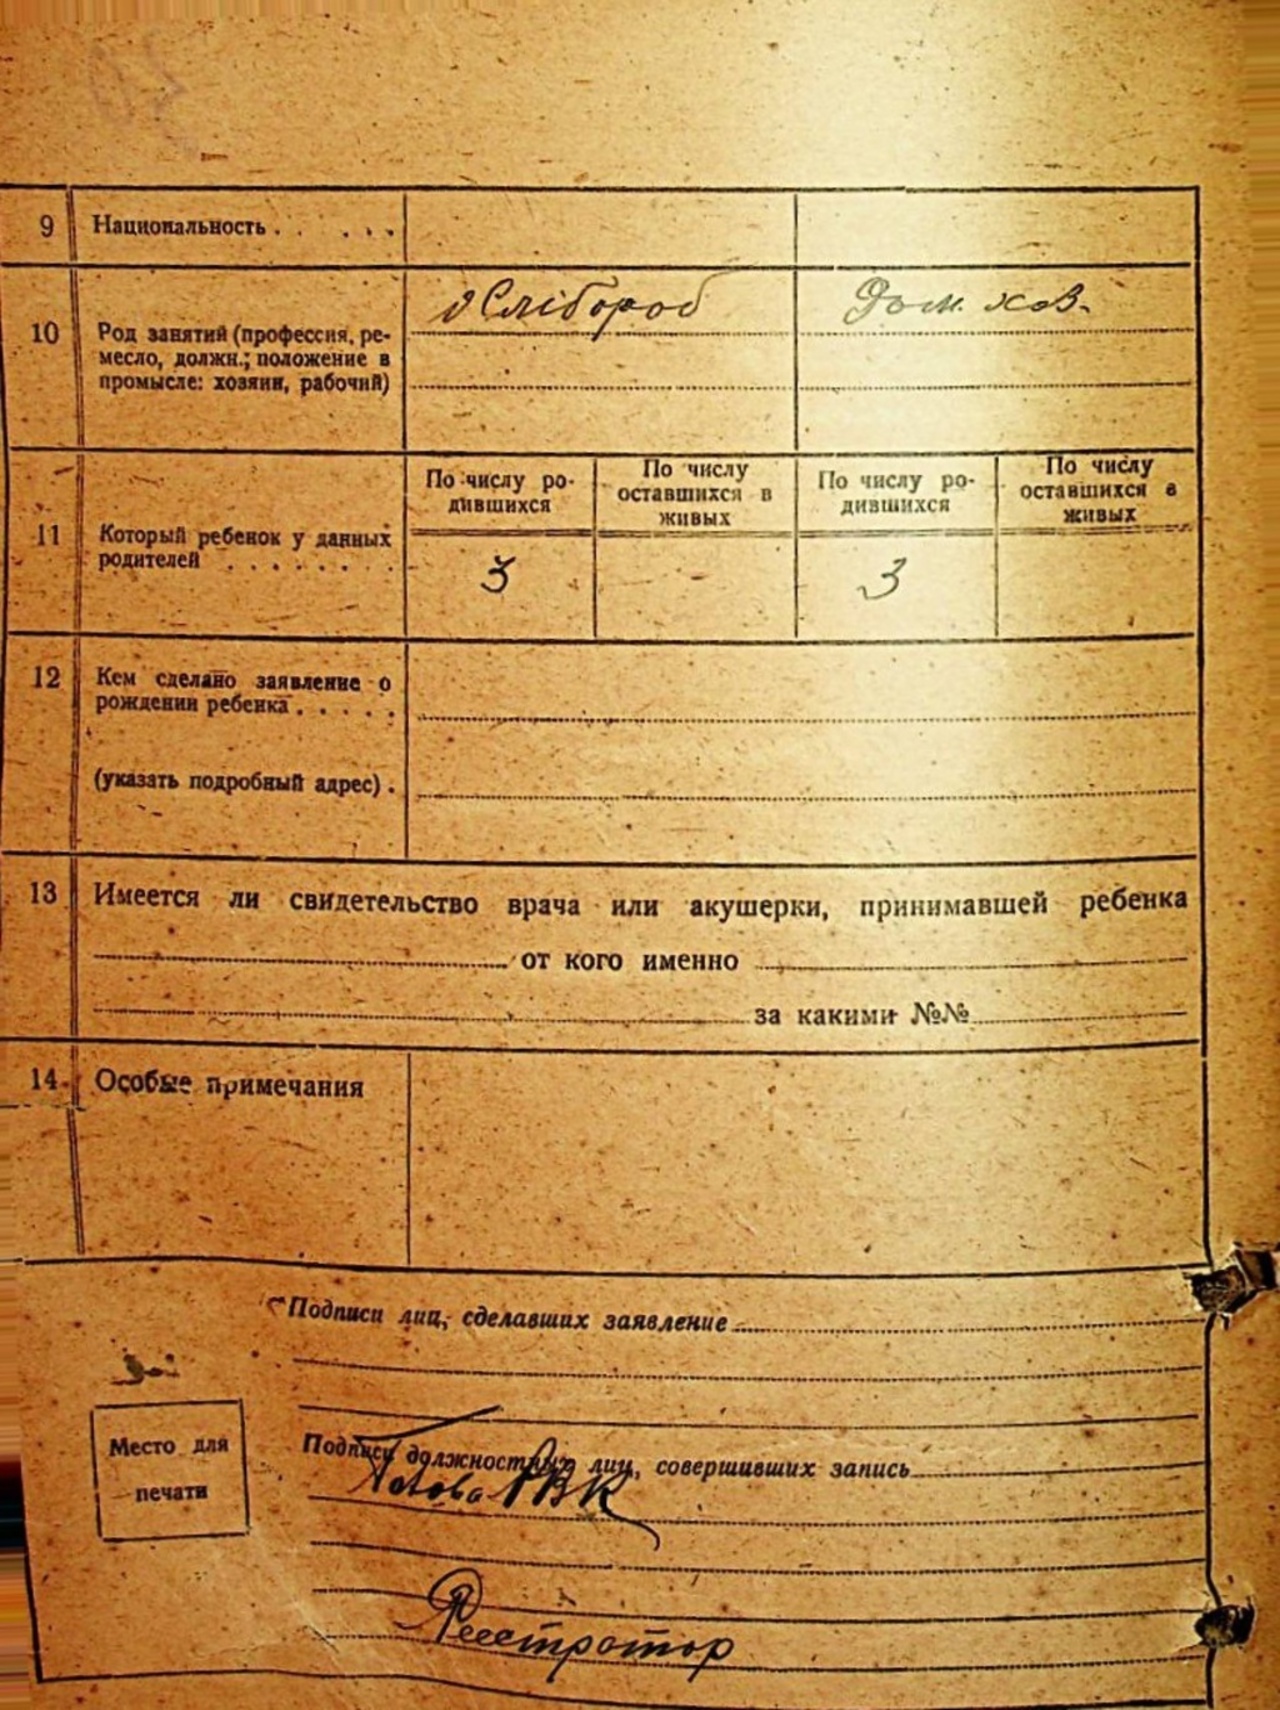 9 Национальность . . . . . .
хлібороб Дом. хов.
10 Род занятий (профессия, ре-
месло, должн.; положение в
промысле: хозяин, рабочий)
По числу ро-
дившихся
По числу
оставшихся в
живых
По числу ро-
дившихся
По числу
оставшихся в
живых
11 Который ребенок у данных
родителей . . . . . . . .
3 3
12 Кем сделано заявление о
рождении ребенка . . . . .
(указать подробный адрес) .
13 Имеется ли свидетельство врача или акушерки, принимавшей ребенка
от кого именно
за какими №№
14 Особые примечания
Подписи лиц, сделавших заявление
Место для
печати
Подписи должностных лиц, совершивших запись
Голова РВК
Реєстротор